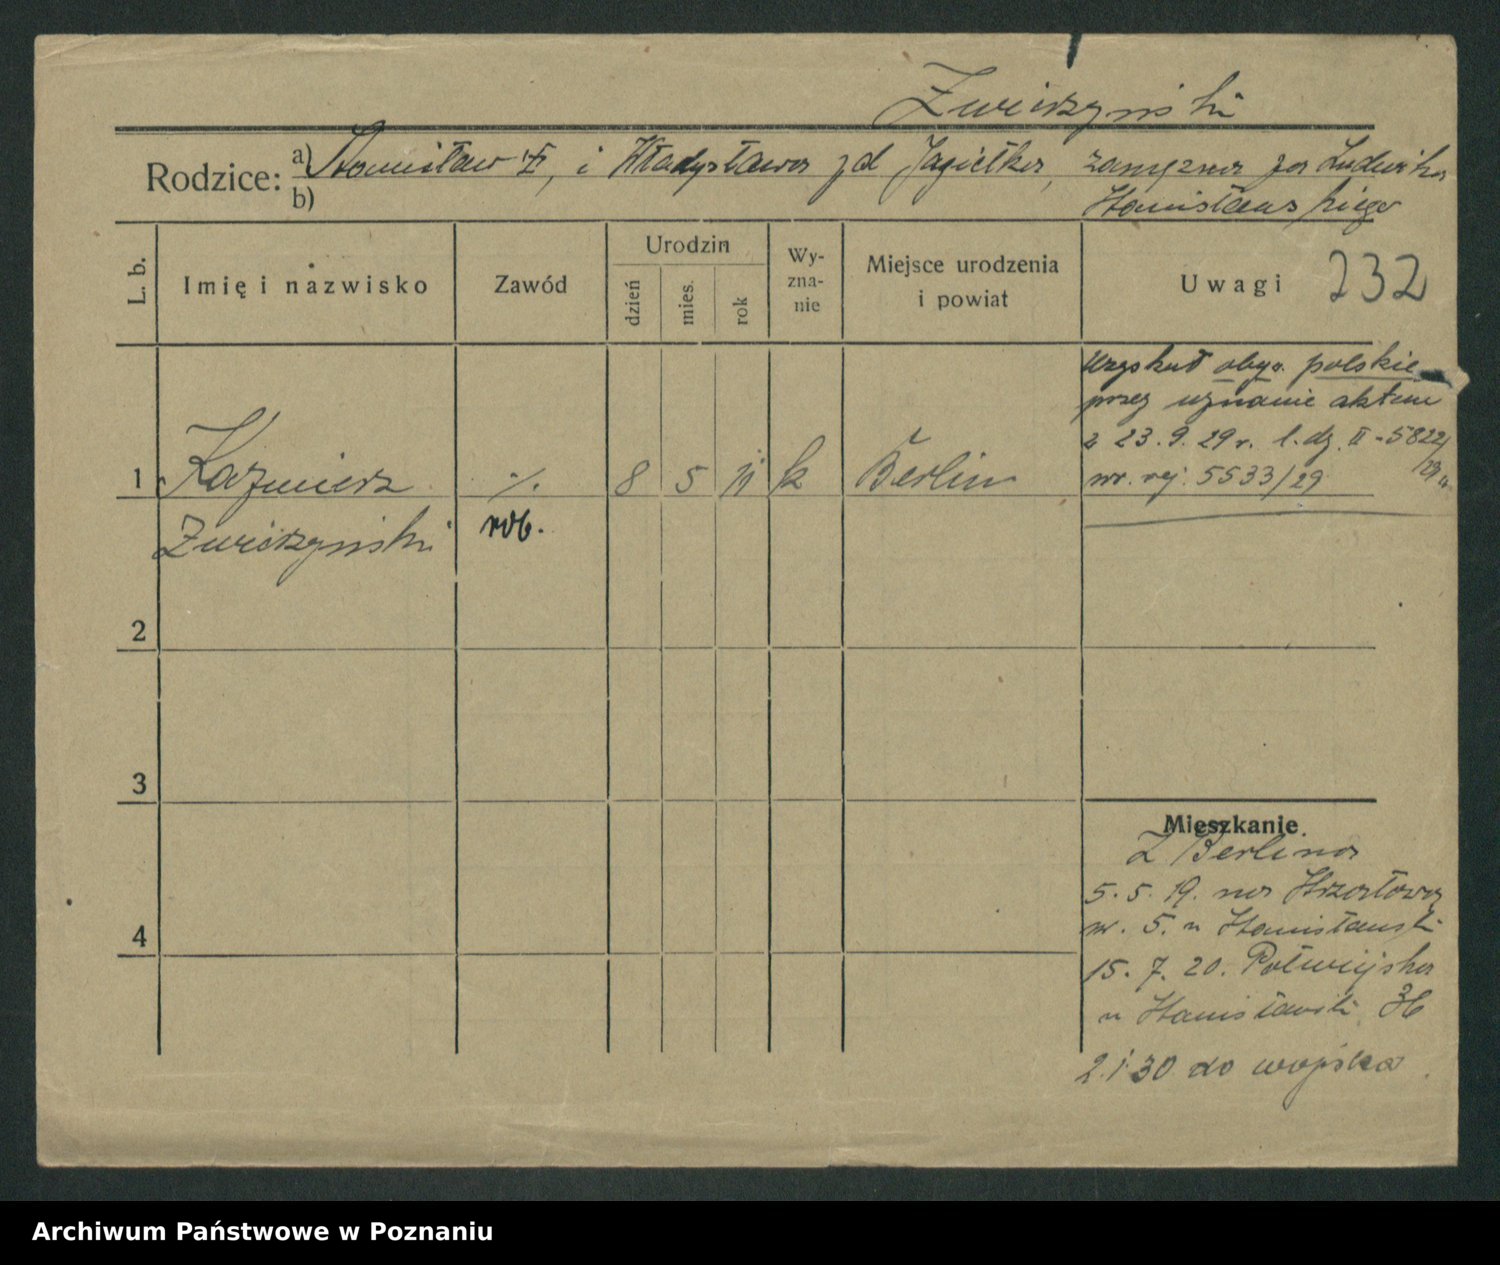 Zwierzyński
Rodzice: a) Stanisław, i Władysława zd Jagiełka, zamężna za Ludwika
b) Stanisławskiego
L. b.
Imię i nazwisko
Zawód
Urodzin
dzień
mies.
rok
Wy-
zna-
nie
Miejsce urodzenia
i powiat
Uwagi 232
uzyskał obyw. polskie
przez uznanie aktem
z 23.9.29 r. l.dz. II-5822/
29 r.
nr. rej. 5533/29
1 Kazimierz ./. 8 5 11 k Berlin
Zwierzyński rob.
2
3
4
Mieszkanie.
Z Berlina
5.5.19. na
nr. 5. u Stanisławski
15.7.20. Półwiejska
u Stanisławski 36
2.1.30 do wojska
Archiwum Państwowe w Poznaniu